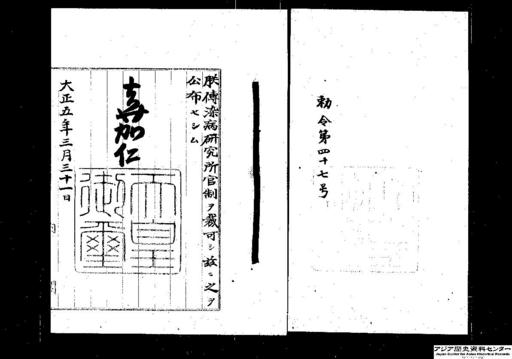 勅令第四十七号
朕傳染病研究所官制ヲ裁可シ茲ニ之ヲ
公布セシム
嘉仁
天皇
御璽
大正五年三月三十一日
内閣
アジア歴史資料センター
Japan Center for Asian Historical Records